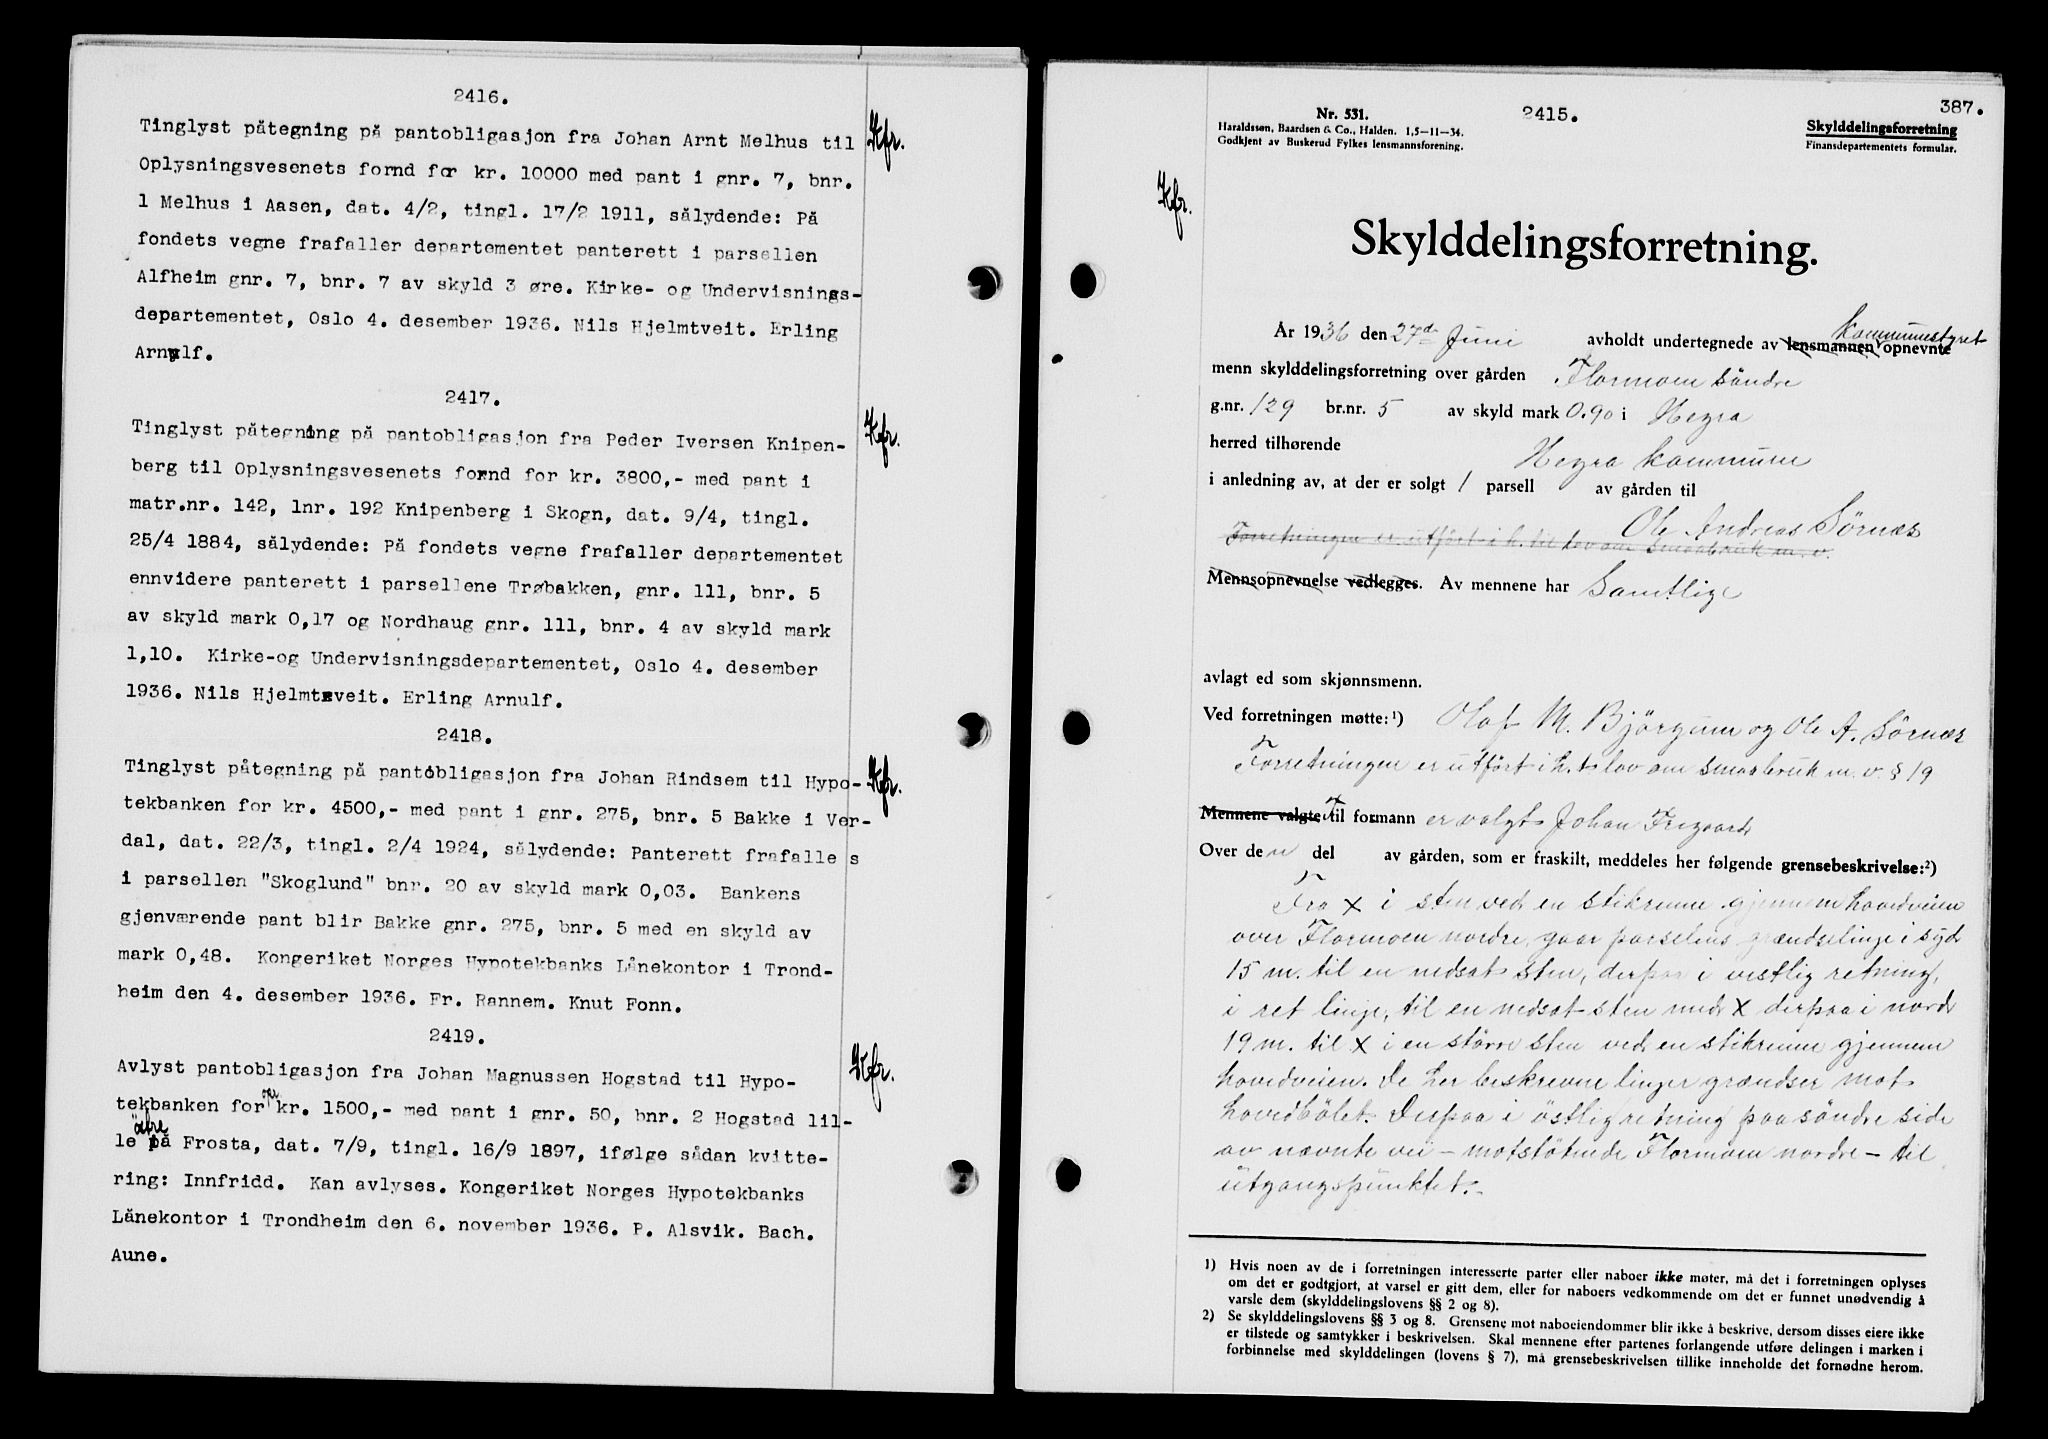 2416.
Tinglyst påtegning på pantobligasjon fra Johan Arnt Melhus til
Oplysningsvesenets fornd for kr. 10000 med pant i gnr. 7, bnr.
1 Melhus i Aasen, dat. 4/2, tingl. 17/2 1911, sålydende: På
fondets vegne frafaller departementet panterett i parsellen
Alfheim gnr. 7, bnr. 7 av skyld 3 øre. Kirke- og Undervisnings-
departementet, Oslo 4. desember 1936. Nils Hjelmtveit. Erling
Arnulf.
Kfr.
2417.
Tinglyst påtegning på pantobligasjon fra Peder Iversen Knipen-
berg til Oplysningsvesenets fornd for kr. 3800,- med pant i
matr.nr. 142, lnr. 192 Knipenberg i Skogn, dat. 9/4, tingl.
25/4 1884, sålydende: På fondets vegne frafaller departementet
ennvidere panterett i parsellene Trøbakken, gnr. 111, bnr. 5
av skyld mark 0,17 og Nordhaug gnr. 111, bnr. 4 av skyld mark
1,10. Kirke-og Undervisningsdepartementet, Oslo 4. desember
1936. Nils Hjelmtveit. Erling Arnulf.
Kfr.
2418.
Tinglyst påtegning på pantobligasjon fra Johan Rindsem til Hypo-
tekbanken for kr. 4500,- med pant i gnr. 275, bnr. 5 Bakke i Ver-
dal, dat. 22/3, tingl. 2/4 1924, sålydende: Panterett frafalle s
i parsellen "Skoglund" bnr. 20 av skyld mark 0,03. Bankens
gjenværende pant blir Bakke gnr. 275, bnr. 5 med en skyld av
mark 0,48. Kongeriket Norges Hypotekbanks Lånekontor i Trond-
heim den 4. desember 1936. Fr. Rannem. Knut Fonn.
Kfr.
2419.
Avlyst pantobligasjon fra Johan Magnussen Hogstad til Hypo-
tekbanken for kr. 1500,- med pant i gnr. 50, bnr. 2 Hogstad lil-
le på Frosta, dat. 7/9, tingl. 16/9 1897, ifølge sådan kvitte-
ring: Innfridd. Kan avlyses. Kongeriket Norges Hypotekbanks
Lånekontor i Trondheim den 6. november 1936. P. Alsvik. Bach.
Aune.
Kfr.
387.
Nr. 531.
2415.
Haraldssøn, Baardsen & Co., Halden. 1,5-11-34.
Godkjent av Buskerud Fylkes lensmannsforening.
Skylddelingsforretning
Finansdepartementets formular.
Kfr.
Skylddelingsforretning.
År 1936 den 27de Juni avholdt undertegnede av lensmannen kommunestyret opnevnte
menn skylddelingsforretning over gården Flormoen söndre
g.nr. 129 br.nr. 5 av skyld mark 0.90 i Hegra
herred tilhørende Hegra kommune
i anledning av, at der er solgt 1 parsell av gården til
Ole Andreas Sörnes
Forretningen er utført i h. til lov om smaabruk m. v.
Mennsopnevnelse vedlegges. Av mennene har Samtlige
avlagt ed som skjønnsmenn.
Ved forretningen møtte:¹) Olaf M. Björgum og Ole A. Sörnes
Forretningen er utfört i h. t. lov om smaabruk m. v. § 19
Mennene valgte Til formann er valgt Johan Frigaard
Over den del av gården, som er fraskilt, meddeles her følgende grensebeskrivelse:²)
Fra X i sten ved en stikrenne gjennem hovedveien
over Flormoen nordre, gaar parselens grændselinje i syd
15 m. til en nedsat sten, derpaa i vestlig retning,
i ret linje, til en nedsat sten med X derpaa i nord
19 m. til X i en större sten ved en stikrenne gjennem
hovedveien. De her beskrevne linjer grændser mot
hovedbölet. Derpaa i östlig retning paa söndre side
av nævnte vei - motstötende Flormoen nordre - til
utgangspunktet.-
1) Hvis noen av de i forretningen interesserte parter eller naboer ikke møter, må det i forretningen oplyses
om det er godtgjort, at varsel er gitt dem, eller for naboers vedkommende om det er funnet unødvendig å
varsle dem (skylddelingslovens §§ 2 og 8).
2) Se skylddelingslovens §§ 3 og 8. Grensene mot naboeiendommer blir ikke å beskrive, dersom disses eiere ikke
er tilstede og samtykker i beskrivelsen. Skal mennene efter partenes forlangende utføre delingen i marken i
forbinnelse med skylddelingen (lovens § 7), må grensebeskrivelsen tillike inneholde det fornødne herom.